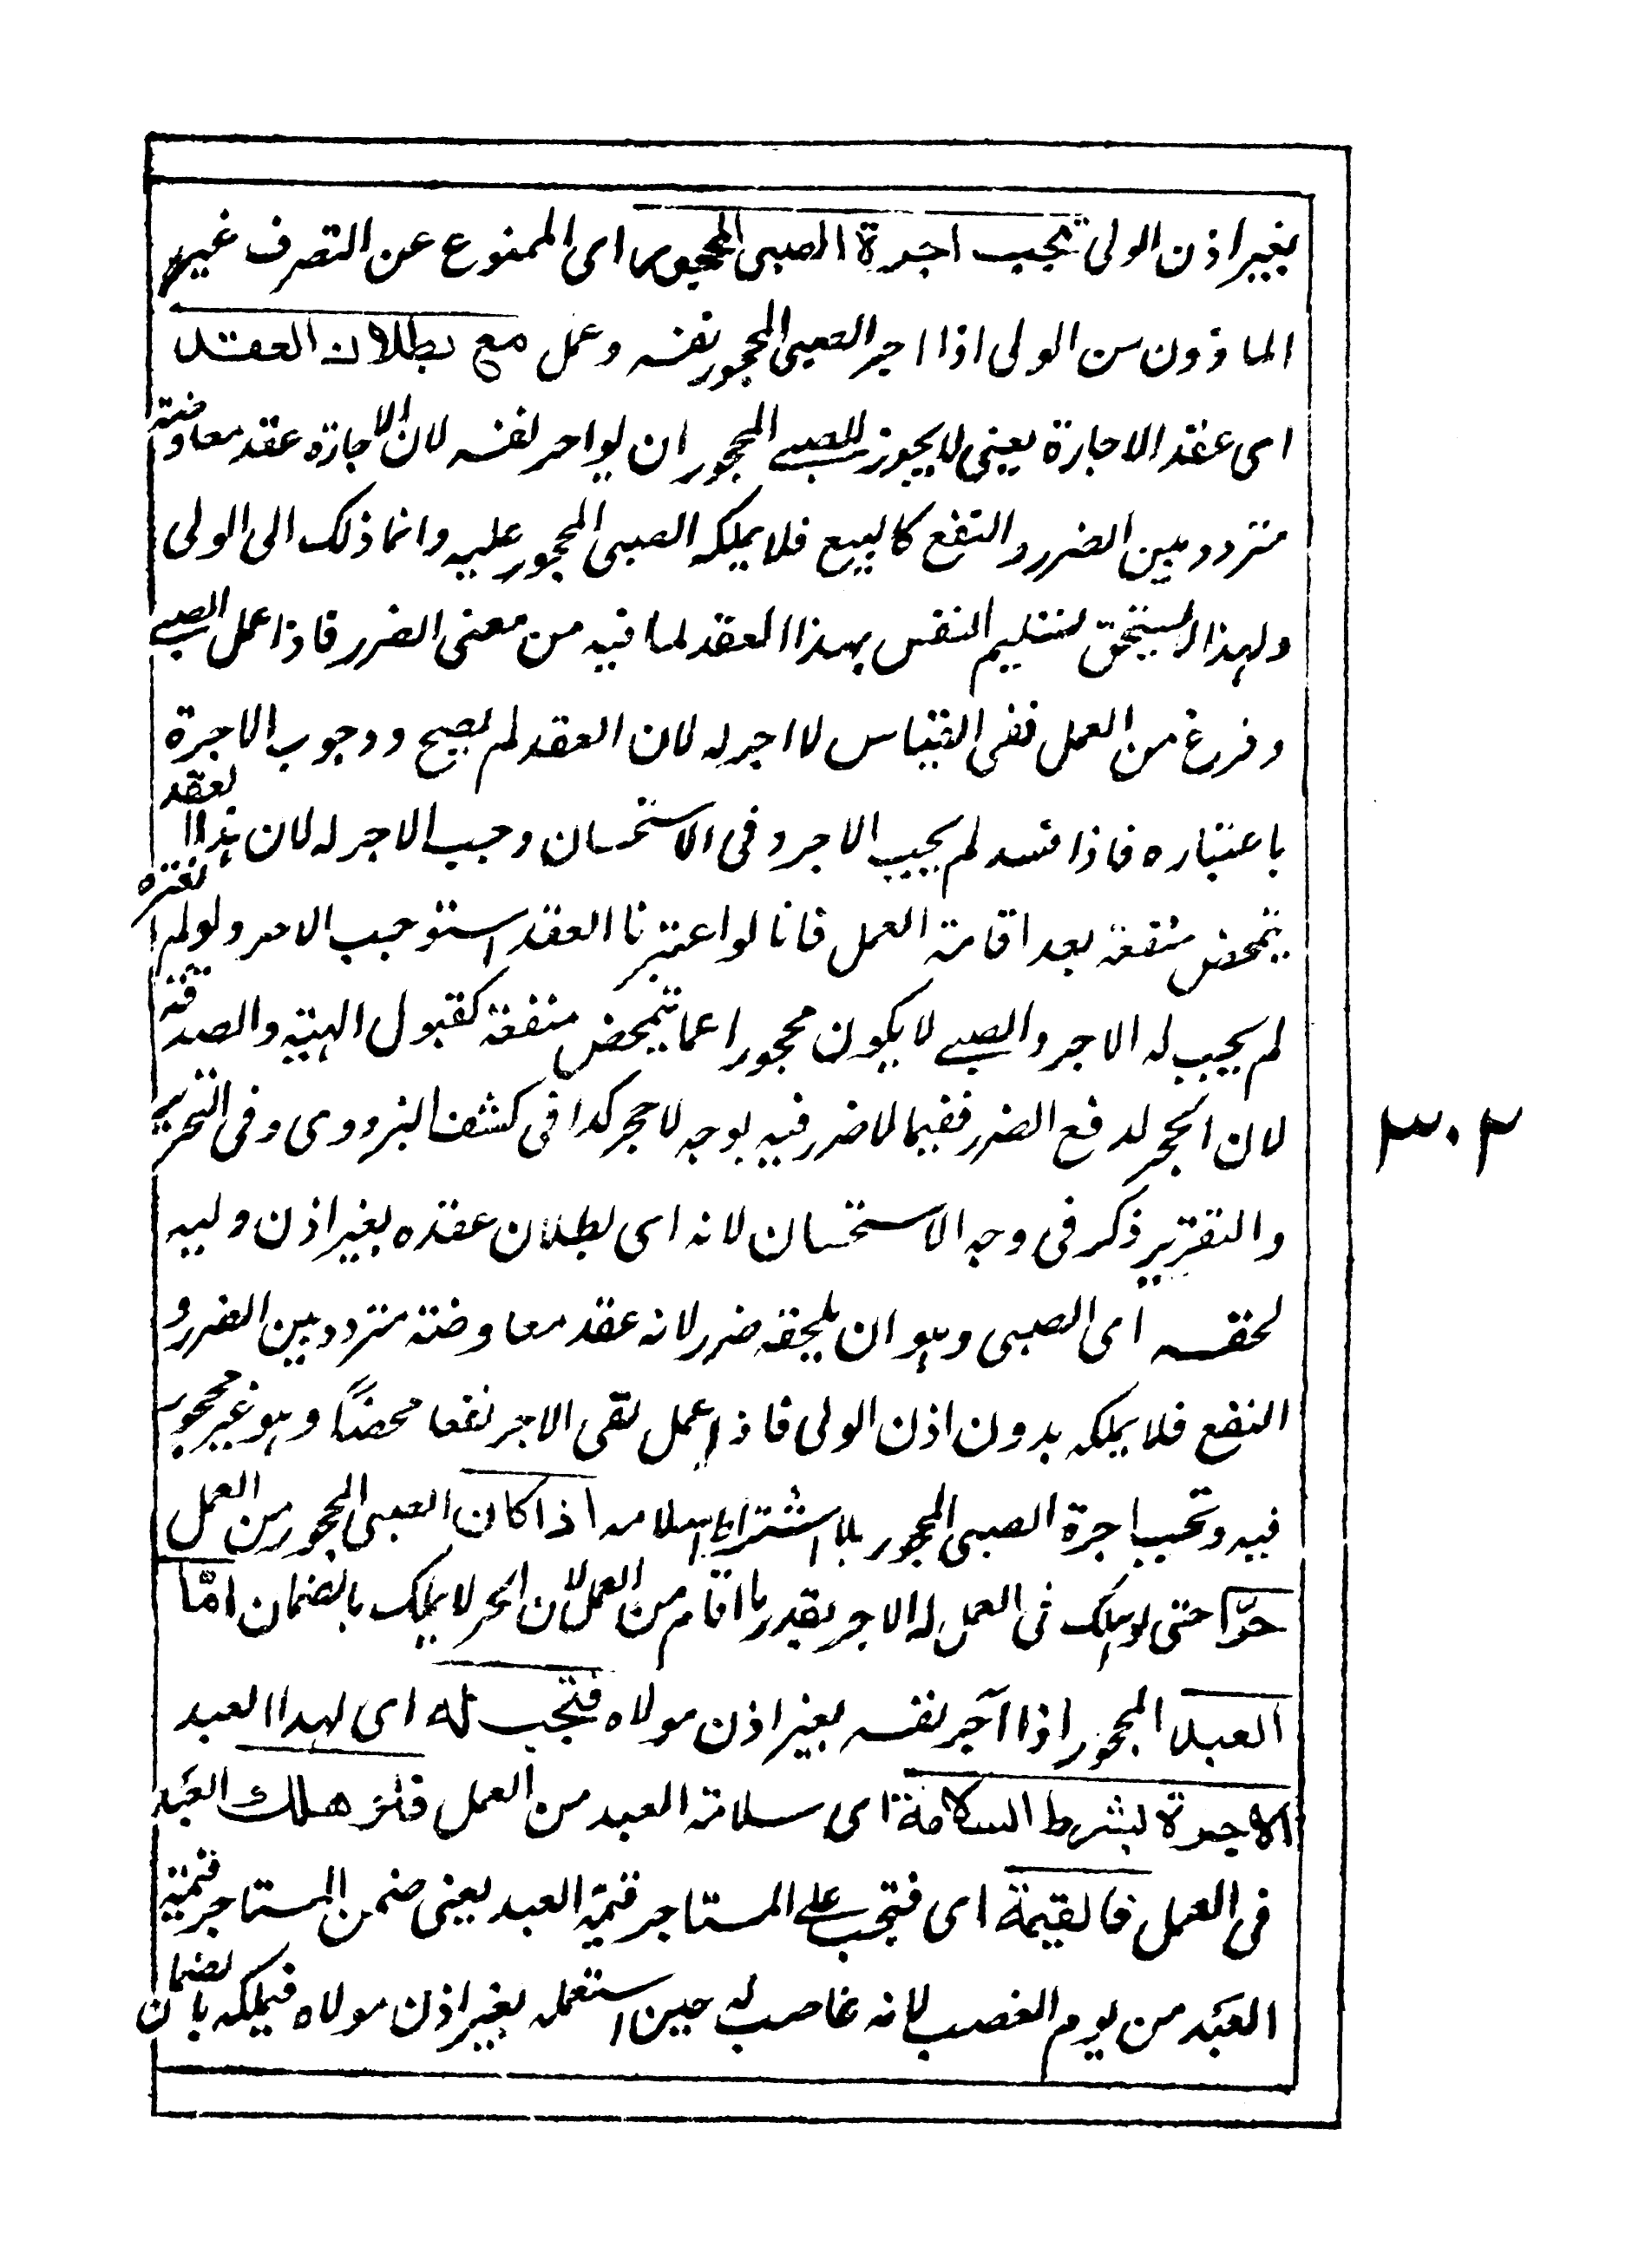 بغير اذن الولى تجب اجرة الصبى المحجور اى الممنوع عن التصرف غير
الماذون من الولى اذا اجر الصبى المحجور نفسه وعمل مع بطلان العقد
اى عقد الاجارة يعنى لا يجوز للصبى المحجور ان يواجر نفسه لان الاجارة عقد معاوضة
متردد بين الضرر والنفع كالبيع فلا يملكه الصبى المحجور عليه وانما ذلك الى الولى
ولهذا لا يستحق تسليم النفس بهذا العقد لما فيه من معنى الضرر فاذا عمل الصبى
وفرغ من العمل ففى القياس لا اجر له لان العقد لم يصح ووجوب الاجرة
باعتباره فاذا فسد لم يجب الاجر وفى الاستحسان وجب الاجر له لان هذا العقد
يتمحض منفعة بعد اقامة العمل فانا لو اعتبرنا العقد استوجب الاجر ولو لم نعتبره
لم يجب له الاجر والصبى لا يكون محجورا عما يتمحض منفعة كقبول الهبة والصدقة
لان الحجر لدفع الضرر ففيما لا ضرر فيه بوجه لا حجر كذا فى كشف البزدوى وفى التحرير
والتقرير ذكر فى وجه الاستحسان لانه اى بطلان عقده بغير اذن وليه
لحقه اى الصبى وهو ان يلحقه ضرر لانه عقد معاوضة متردد بين الضرر و
النفع فلا يملكه بدون اذن الولى فاذا عمل بقى الاجر نفعا محضاً وهو غير محجور
فيه وتجب اجرة الصبى المحجور بلا اشتراط سلامه اذا كان الصبى المحجور من العمل
حرّا حتى لو هلك فى العمل له الاجر بقدر ما اقام من العمل لان الحر لا يملك بالضمان امّا
العبد المحجور اذا آجر نفسه بغير اذن مولاه فتجب له اى لهذا العبد
الاجرة بشرط السلامة اى سلامة العبد من العمل فلو هلك العبد
فى العمل فالقيمة اى فتجب على المستاجر قيمة العبد يعنى ضمن المستاجر قيمة
العبد من يوم الغصب لانه غاصب له حين استعمله بغير اذن مولاه فيملكه بالضمان
٣٠٢